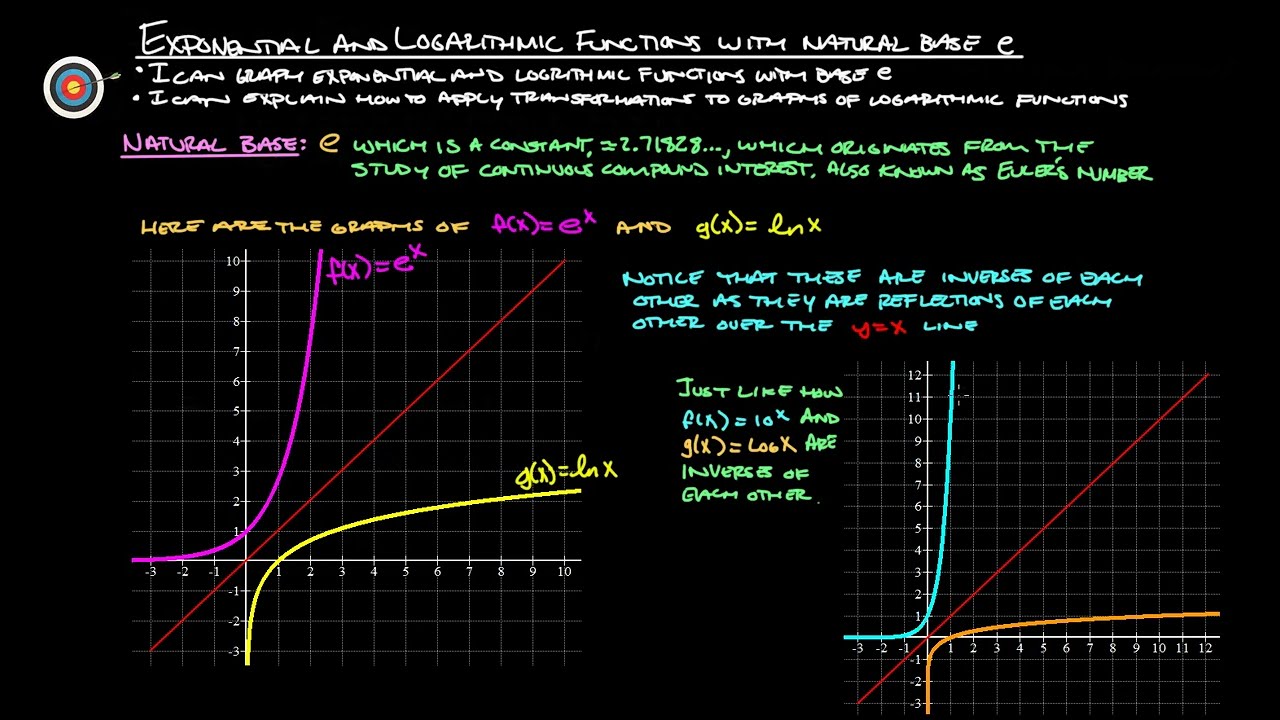 EXPONENTIAL AND LOGARITHMIC FUNCTIONS WITH NATURAL BASE e
• I CAN GRAPH EXPONENTIAL AND LOGRITHMIC FUNCTIONS WITH BASE e
• I CAN EXPLAIN HOW TO APPLY TRANSFORMATIONS TO GRAPHS OF LOGARITHMIC FUNCTIONS
NATURAL BASE: e WHICH IS A CONSTANT, ≈2.71828..., WHICH ORIGINATES FROM THE
STUDY OF CONTINUOUS COMPOUND INTEREST. ALSO KNOWN AS EULER'S NUMBER
HERE ARE THE GRAPHS OF f(x)=e^x AND g(x)=ln x
f(x)=e^x
g(x)=ln x
10
9
8
7
6
5
4
3
2
1
-1
-2
-3
-3 -2 -1 1 2 3 4 5 6 7 8 9 10
NOTICE THAT THESE ARE INVERSES OF EACH
OTHER AS THEY ARE REFLECTIONS OF EACH
OTHER OVER THE y=x LINE
JUST LIKE HOW
f(x)=10^x AND
g(x)=LOG X ARE
INVERSES OF
EACH OTHER.
12
11
10
9
8
7
6
5
4
3
2
1
-1
-2
-3
-3 -2 -1 1 2 3 4 5 6 7 8 9 10 11 12